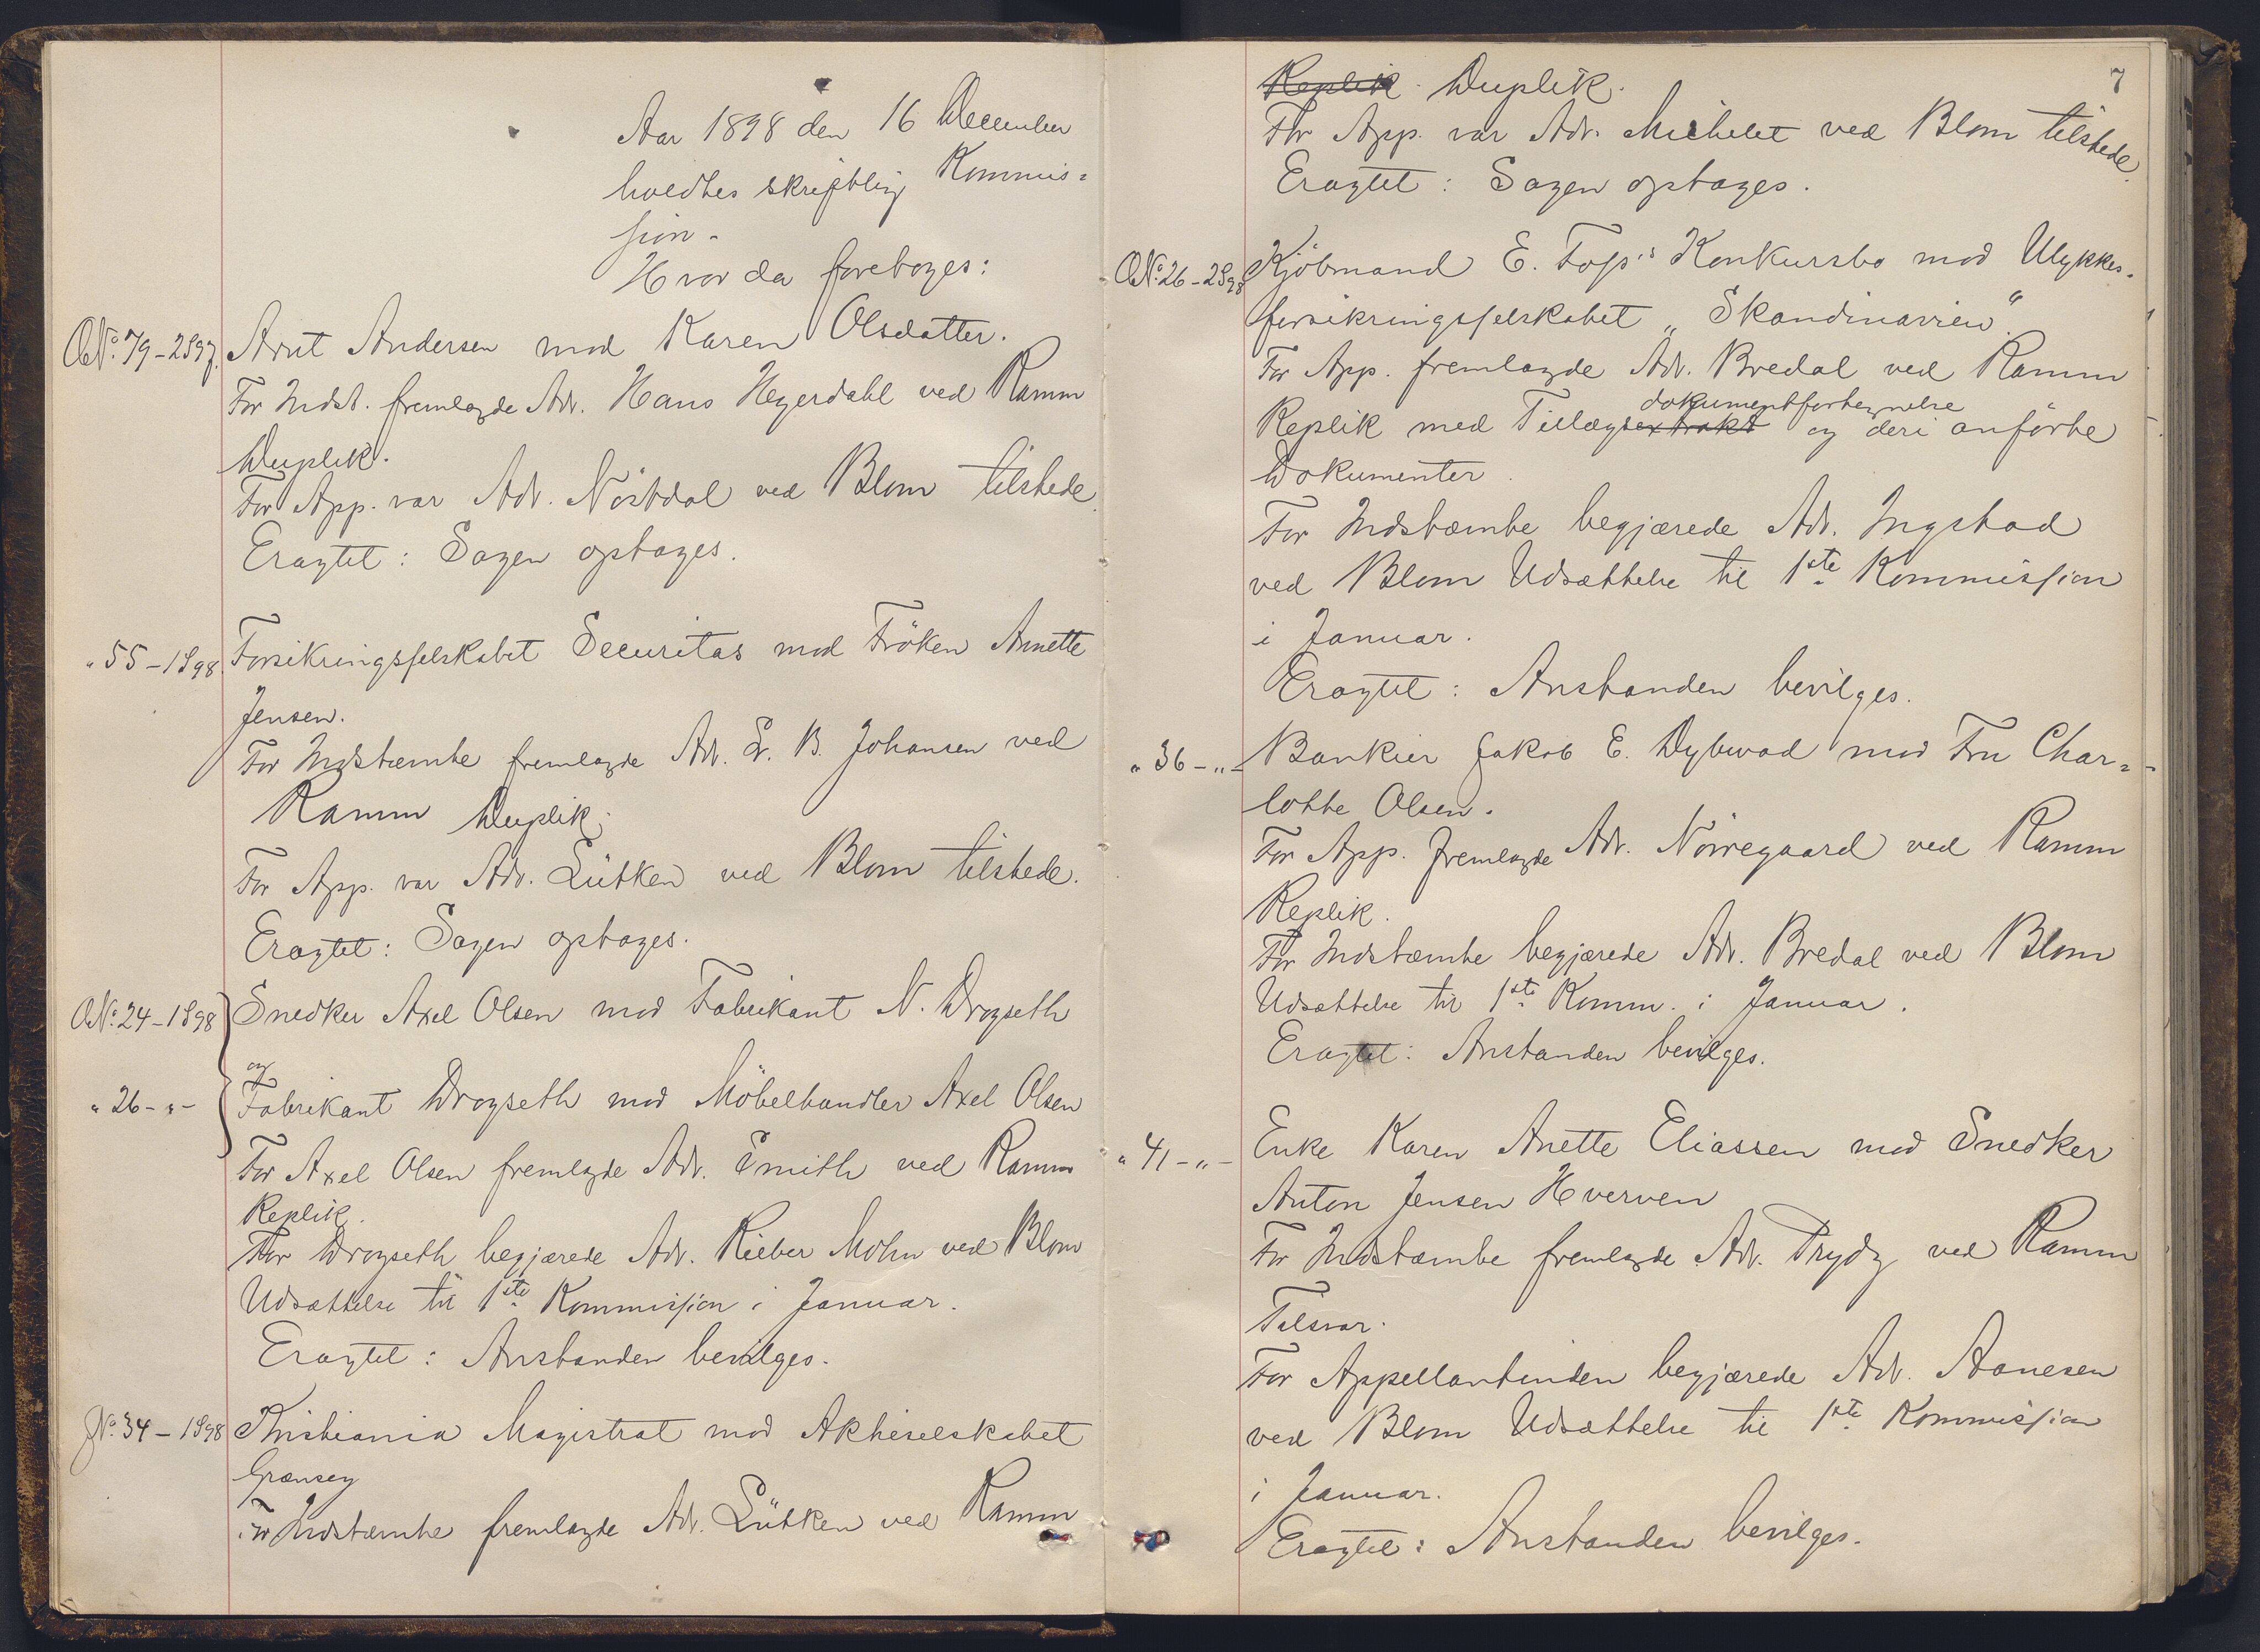 Aar 1898 den 16 December
holdtes skriftlig Kommis=
sion.
Hvor da foretoges:
No. 79-2S97. Arnt Andersen mod Karen Olsdatter.
For Indst. fremlagde Adv. Hans Heyerdahl ved Ramm
Duplik.
For App. var Adv. Nöstdal ved Blom tilstede.
Eragtet: Sagen optages.
" 55-1S98. Forsikringsselskabet Securitas mod Fröken Annette
Jensen.
For Indstæmte fremlagde Adv. Fr. B. Johansen ved
Ramm Duplik.
For App. var Adv. Lütken ved Blom tilstede.
Eragtet: Sagen optages.
No. 24-1S98 Snedker Axel Olsen mod Fabrikant N. Drogseth
og
" 26-"- Fabrikant Drogseth mod Möbelhandler Axel Olsen
For Axel Olsen fremlagde Adv. Smith ved Ramm
Replik.
For Drogseth begjærede Adv. Rieber Mohn ved Blom
Udsættelse til 1ste Kommission i Januar.
Eragtet: Anstanden bevilges.
No. 34-1S98 Kristiania Magistrat mod Aktieselskabet
Grænsen
For Indstæmte fremlagde Adv. Lütken ved Ramm
7
Replik. Duplik.
For App. var Adv. Michelet ved Blom tilstede.
Eragtet: Sagen optages.
No. 26-2S98 Kjöbmand E. Foss's Konkursbo mod Ulykkes-
forsikringsselskabet "Skandinavien".
For App. fremlagde Adv. Bredal ved Ramm
dokumentfortegnelse
Replik med Tillægsextrakt og deri anförte
Dokumenter.
For Indstæmte begjærede Adv. Ingstad
ved Blom Udsættelse til 1ste Kommission
i Januar.
Eragtet: Anstanden bevilges.
" 36-"- Bankier Jakob E. Dybwad mod Fru Char=
lotte Olsen.
For App. fremlagde Adv. Nörregaard ved Ramm
Replik.
For Indstæmte begjærede Adv. Bredal ved Blom
Udsættelse til 1ste Komm. i Januar.
Eragtet: Anstanden bevilges.
" 41-"- Enke Karen Anette Eliassen mod Snedker
Anton Jensen Hverven
For Indstæmte fremlagde Adv. Prydz ved Ramm
Tilsvar.
For Appellantinden begjærede Adv. Aanesen
ved Blom Udsættelse til 1ste Kommission
i Januar.
Eragtet: Anstanden bevilges.